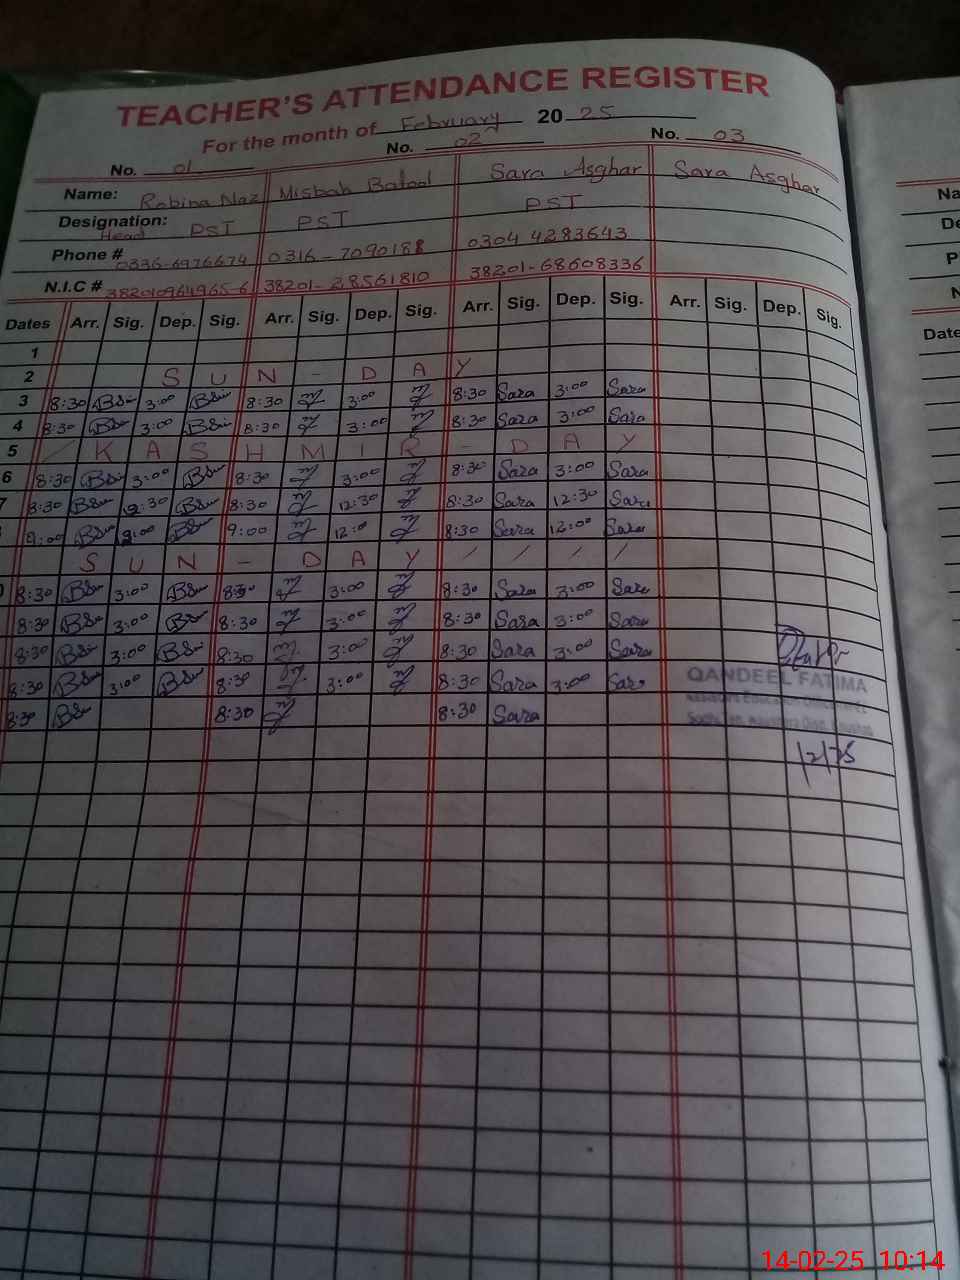 TEACHER'S ATTENDANCE REGISTER
For the month of February 20 25
No. 01 No. 02 No. 03
Name: Robina Naz Misbah Batool Sara Asghar Sara Asghar
Designation: Head PST PST PST
Phone # 0336-6976674 0316-7090188 0304 4283643
N.I.C # 382010964965-6 38201-28561810 38201-68608336
Dates Arr. Sig. Dep. Sig. Arr. Sig. Dep. Sig. Arr. Sig. Dep. Sig. Arr. Sig. Dep. Sig.
1
2 SUN - DAY
3 8:30 3:00 8:30 3:00 8:30 Sara 3:00 Sara
4 8:30 3:00 8:30 3:00 8:30 Sara 3:00 Sara
5 KASHMIR - DAY
6 8:30 3:00 8:30 3:00 8:30 Sara 3:00 Sara
7 8:30 12:30 8:30 12:30 8:30 Sara 12:30 Sara
9:00 9:00 12:0 8:30 Sara 12:00 Sara
SUN - DAY / / / /
8:30 3:00 8:30 3:00 8:30 Sara 3:00 Sara
8:30 3:00 8:30 3:00 8:30 Sara 3:00 Sara
8:30 3:00 8:30 3:00 8:30 Sara 3:00 Sara
8:30 3:00 8:30 3:00 8:30 Sara 3:00 Sara
8:30 8:30 8:30 Sara
QANDEEL FATIMA
Na
De
P
N
Date
14-02-25 10:14